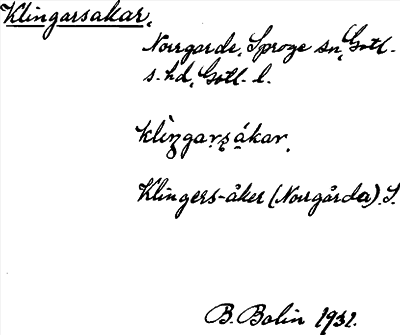 Klingarsakar.
Norrgarde, Sproge sn, Gotl-
s. hd, Gotl. l.
klìŋgaṛṣákar.
Klingers-åker (Norrgårda). S.
B. Bolin 1931.